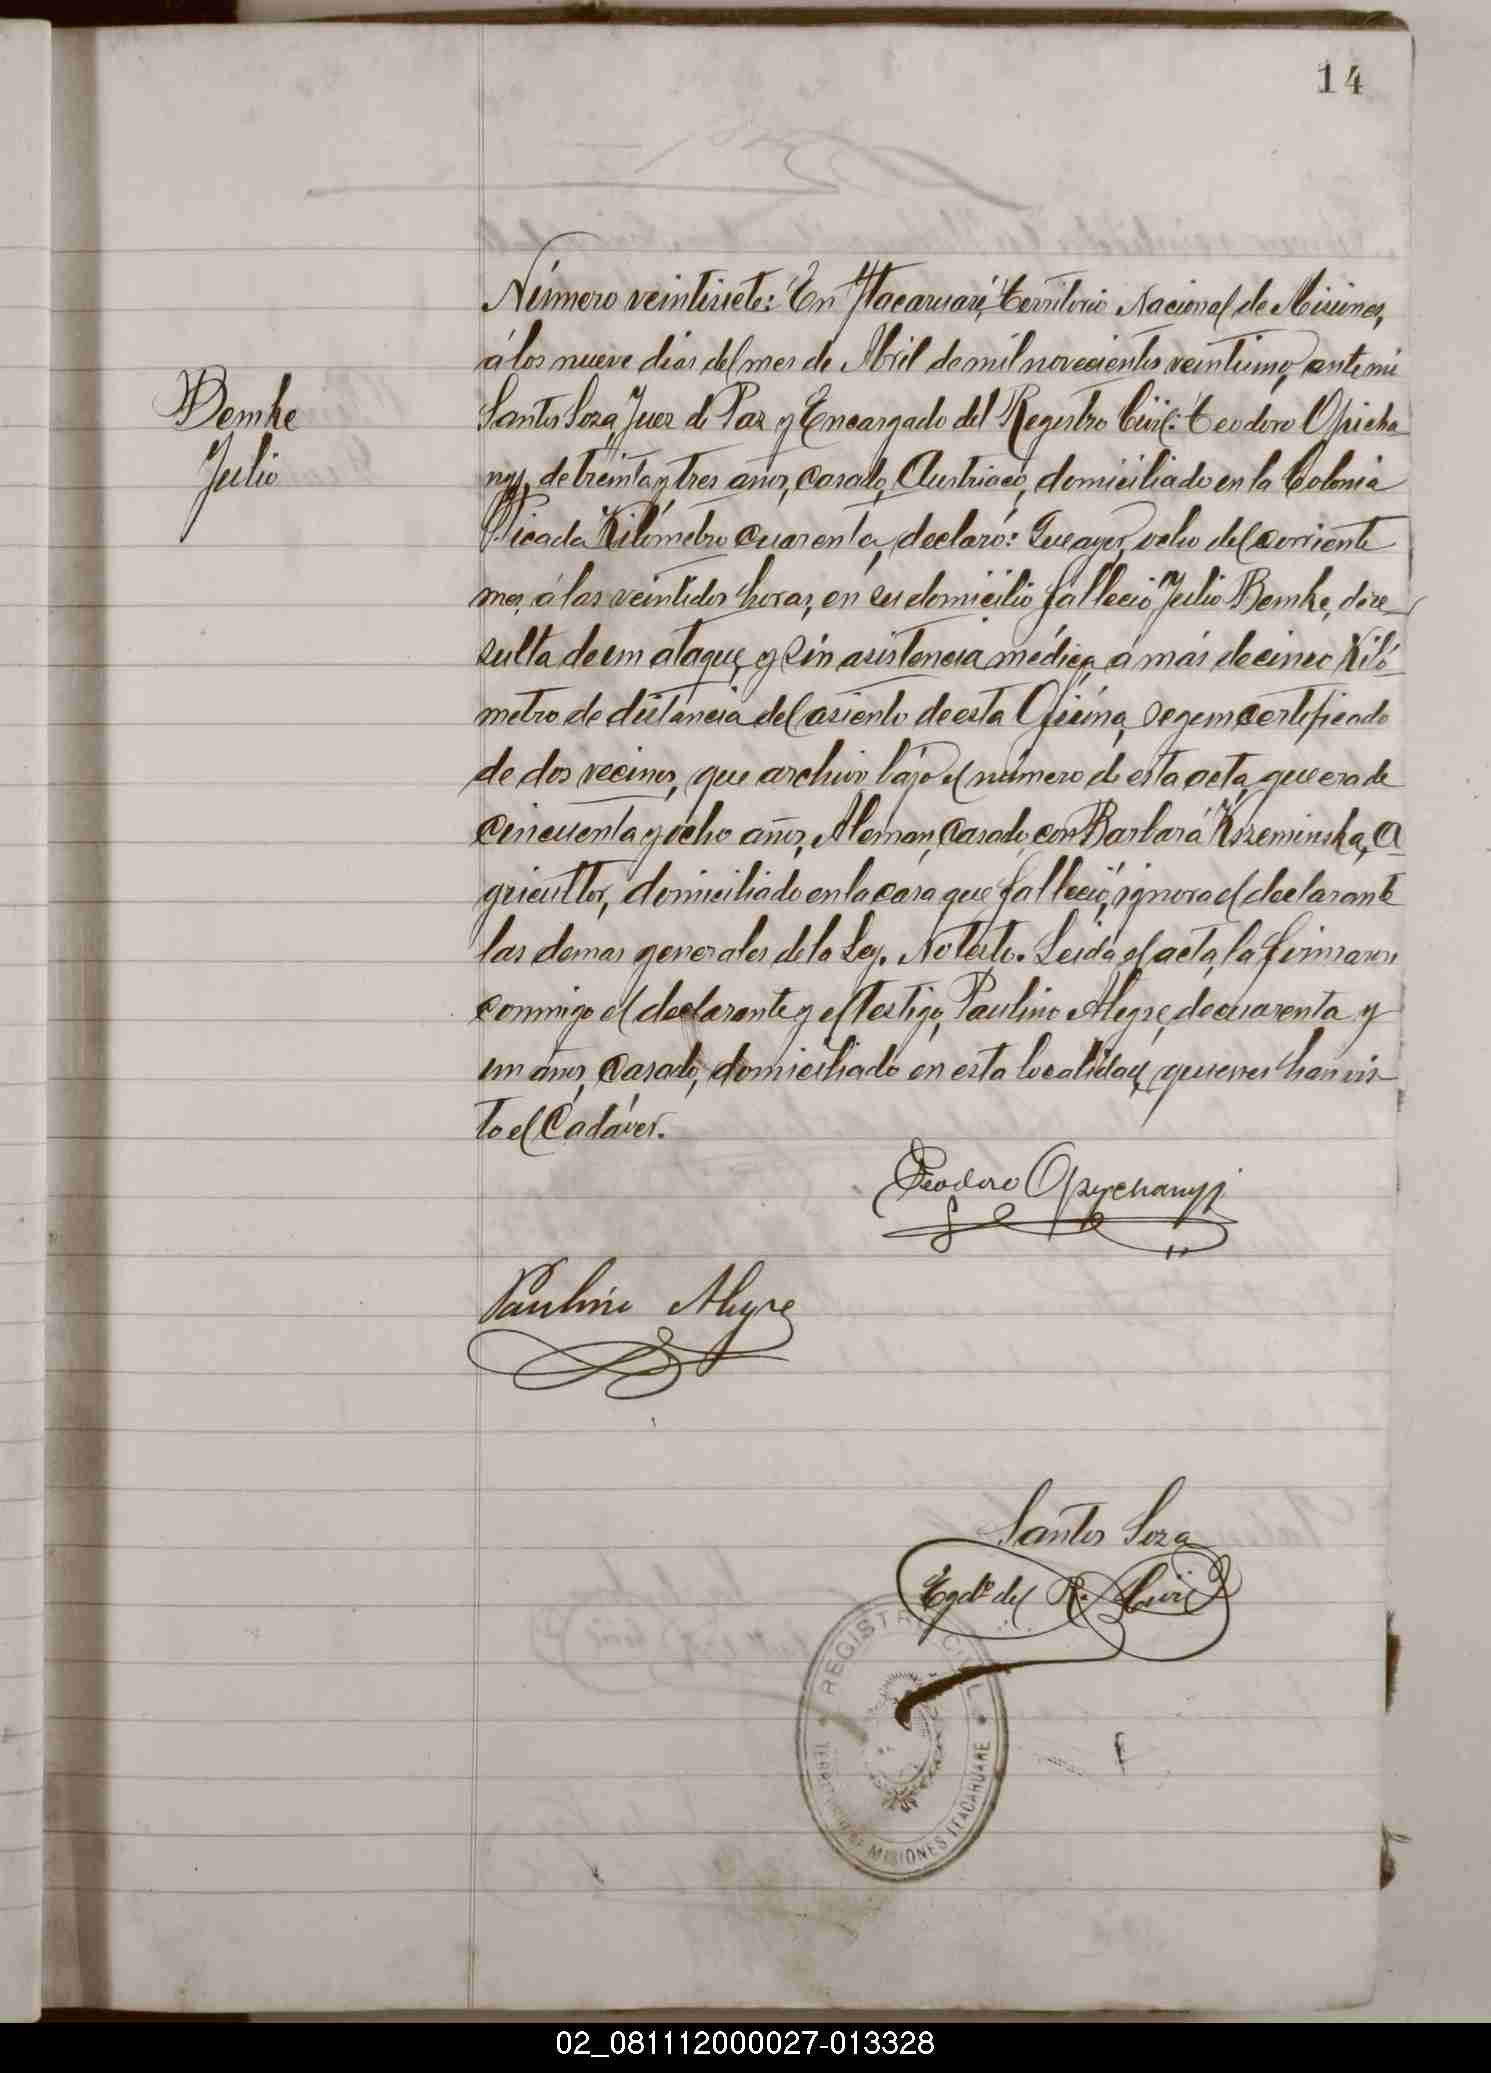 14
Número veintisiete: En Itacaruaré, territorio Nacional de Misiones,
á los nueve dias del mes de Abril de mil novecientos veintiuno, ante mi
Bemke
Julio
Santos Soza, Juez de Paz y Encargado del Registro Civil: Teodoro Opicha
nyj, de treinta y tres años, casado, Austriaco, domiciliado en la Colonia
Picada Kilómetro cuarenta, declaró: Que ayer, ocho del corriente
mes, á las veintidos horas, en su domicilio falleció Julio Bemke, de re
sulta de un ataque, y sin asistencia médica, á más de cinco Kiló
metro de distancia del asiento de esta Oficina, segun certificado
de dos vecinos, que archivo bajo el número de esta acta, que era de
cincuenta y ocho años, Aleman, casado, con Barbará Kszeminska, a
gricultor, domiciliado en la casa que falleció, ignora el declarante
las demas generales de la Ley. No testó. Leida el acta, la firmaron
conmigo el declarante y el testigo, Paulino Alegre, de cuarenta y
un años, casado, domiciliado en esta localidad, quienes han vis-
to el Cadáver.
Teodoro Opychanyj
Paulino Alegre
Santos Soza
Egdo. del R. Civil
REGISTRO CIVIL
TERRITORIO DE MISIONES ITACARUARE
02_081112000027-013328